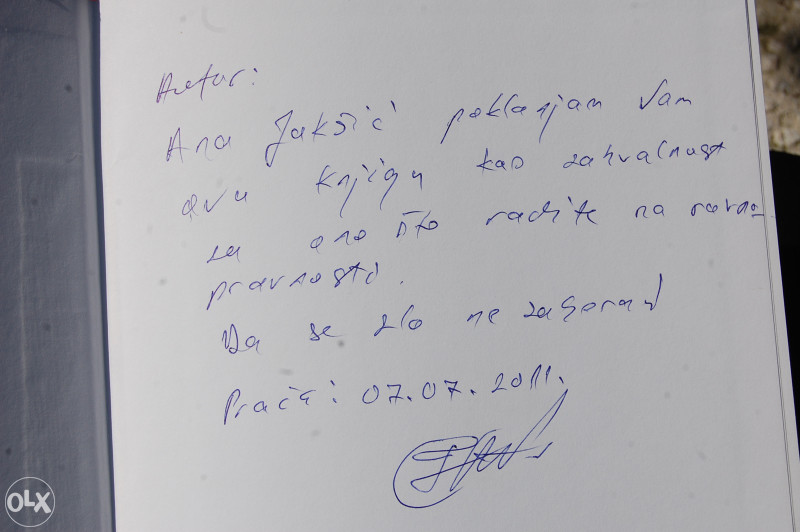 Autor:
Ana Jakšić poklanjam Vam
ovu knjigu kao zahvalnost
za ono što radite na ravno
pravnosti.
Da se zlo ne zaboravi
Prača: 07.07.2011.
OLX